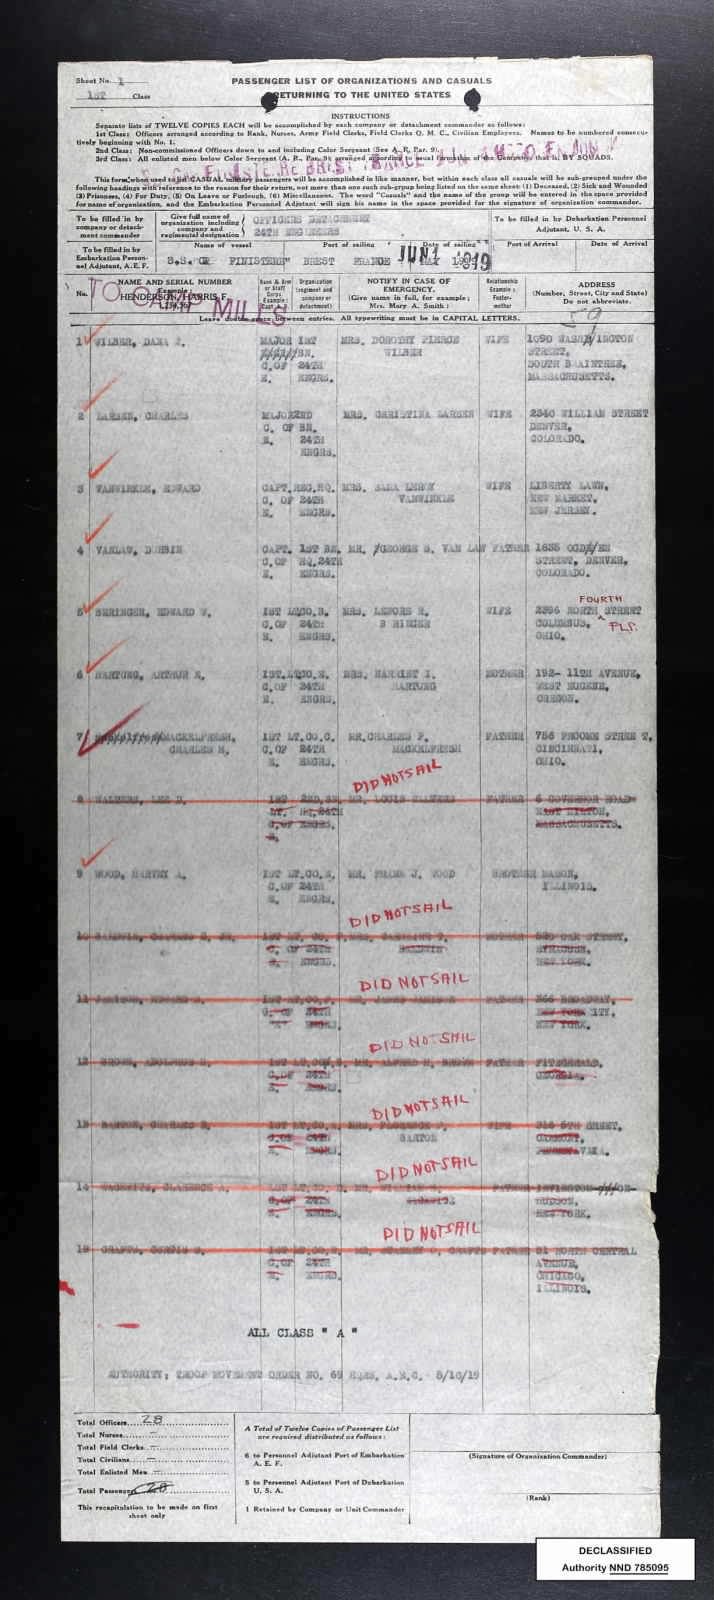 Sheet No. 1
1ST Class
PASSENGER LIST OF ORGANIZATIONS AND CASUALS
RETURNING TO THE UNITED STATES
INSTRUCTIONS
Separate lists of TWELVE COPIES EACH will be accomplished by each company or detachment commander as follows:
1st Class: Officers arranged according to Rank, Nurses, Army Field Clerks, Field Clerks Q. M. C., Civilian Employees. Names to be numbered consecu-
tively beginning with No. 1.
2nd Class: Non-commissioned Officers down to and including Color Sergeant (See A. R. Par. 9).
3rd Class: All enlisted men below Color Sergeant (A. R., Par. 9) arranged according to usual formation of the Company, that is, BY SQUADS.
This form when used to list CASUAL military passengers will be accomplished in like manner, but within each class all casuals will be sub-grouped under the
following headings with reference to the reason for their return, not more than one such sub-group being listed on the same sheet: (1) Deceased, (2) Sick and Wounded
(3) Prisoners, (4) For Duty, (5) On Leave or Furlough, (6) Miscellaneous. The word "Casuals" and the name of the group will be entered in the space provided
for name of organization, and the Embarkation Personnel Adjutant will sign his name in the space provided for the signature of organization commander.
To be filled in by company or detach- ment commander
Give full name of organization including company and regimental designation
OFFICERS DETACHMENT
24TH ENGINEERS
To be filled in by Debarkation Personnel Adjutant, U. S. A.
To be filled in by Embarkation Person- nel Adjutant, A. E. F.
Name of vessel Port of sailing Date of sailing Port of Arrival Date of Arrival
S.S. FINISTERE" BREST FRANCE JUN 1 1919
No. NAME AND SERIAL NUMBER Example: HENDERSON, HARRIS F.
Rank & Arm or Staff Corps Example:
Organization (regiment and company or detachment)
NOTIFY IN CASE OF EMERGENCY. (Give name in full, for example; Mrs. Mary A. Smith.)
Relationship Example: Foster-mother
ADDRESS (Number, Street, City and State) Do not abbreviate.
TO CAMP MILLS
59
Leave double space between entries. All typewriting must be in CAPITAL LETTERS.
1 WILBER, DANA J. MAJOR 1ST MRS. DOROTHY PIERCE WIFE 1090 WASHINGTON
BN. WILBER STREET,
C.OF 24TH SOUTH BRAINTREE,
E. ENGRS. MASSACHUSETTS.
2 LARSEN, CHARLES MAJOR 2ND MRS. CHRISTINA LARSEN WIFE 2340 WILLIAM STREET
C. OF BN. DENVER,
E. 24TH COLORADO.
ENGRS.
3 VANWINKLE, EDWARD CAPT. REG.HQ. MRS. SARA LEROY WIFE LIBERTY LAWN,
C. OF 24TH VANWINKLE NEW MARKET,
E. ENGRS. NEW JERSEY.
4 VANLAW, DURBIN CAPT. 1ST BN. MR. GEORGE S. VAN LAW FATHER 1835 OGDEN
C.OF HQ.24TH STREET, DENVER,
E. ENGRS. COLORADO.
5 BERINGER, EDWARD W. 1ST LT. CO.B. MRS. LENORE R. WIFE 2396 NORTH STREET
FOURTH
C.OF 24TH B RINGER COLUMBUS,
E. ENGRS. OHIO.
6 HARTUNG, ARTHUR E. 1ST.LT. CO.E. MRS. HARRIET I. MOTHER 192- 11TH AVENUE,
C.OF 24TH HARTUNG WEST EUGENE,
E. ENGRS. OREGON.
7 MACKELFRESH, 1ST LT. CO.C. MR.CHARLES F. FATHER 756 FROOME STREE T,
CHARLES H. C.OF 24TH MACKELFRESH CINCINNATI,
E. ENGRS. OHIO.
DID NOT SAIL
8 LEE D. 1ST 2ND.BN. MR. LOUIS FATHER 6 GOVERNOR ROAD
LT. HQ.24TH EAST MILTON,
C.OF ENGRS. MASSACHUSETTS.
E.
9 WOOD, HARVEY A. 1ST LT. CO.E. MR. FRANK J. WOOD BROTHER MASON,
C.OF 24TH ILLINOIS.
E. ENGRS.
DID NOT SAIL
10 BALDWIN, JR. 1ST LT. CO. F. MRS. MOTHER OAK STREET,
C. OF 24TH BALDWIN SYRACUSE,
E. ENGRS. NEW YORK.
DID NOT SAIL
11 JAMISON, 1ST LT. CO.F. MR. JAMES JAMISON FATHER 366 BROADWAY,
C. OF 24TH NEW YORK CITY,
E. ENGRS. NEW YORK.
DID NOT SAIL
12 BROWN, ADOLPHUS 1ST LT. CO. MR. ALFRED H. BROWN FATHER FITZGERALD,
C.OF 24TH GEORGIA.
E. ENGRS.
DID NOT SAIL
13 BARTON, CHARLES 1ST LT. CO. MRS. FLORENCE WIFE 316 5TH STREET,
C.OF 24TH BARTON
E. ENGRS.
DID NOT SAIL
14 CLARENCE A. 1ST LT. CO. MR. WILLIAM FATHER IRVINGTON ON-
C.OF 24TH HUDSON,
E. ENGRS. NEW YORK.
DID NOT SAIL
15 CRAFTS, 1ST LT. CO. MR. STANLEY C. CRAFTS FATHER 31 NORTH CENTRAL
C.OF 24TH AVENUE,
E. ENGRS. CHICAGO,
ILLINOIS.
ALL CLASS " A "
AUTHORITY: TROOP MOVEMENT ORDER NO. 69 HQRS. A.E.C. 5/10/19
Total Officers 28
Total Nurses —
Total Field Clerks —
Total Civilians —
Total Enlisted Men —
Total Passengers 28
This recapitulation to be made on first sheet only
A Total of Twelve Copies of Passenger List
are required distributed as follows:
6 to Personnel Adjutant Port of Embarkation
A. E. F.
5 to Personnel Adjutant Port of Debarkation
U. S. A.
1 Retained by Company or Unit Commander
(Signature of Organization Commander)
(Rank)
DECLASSIFIED
Authority NND 785095